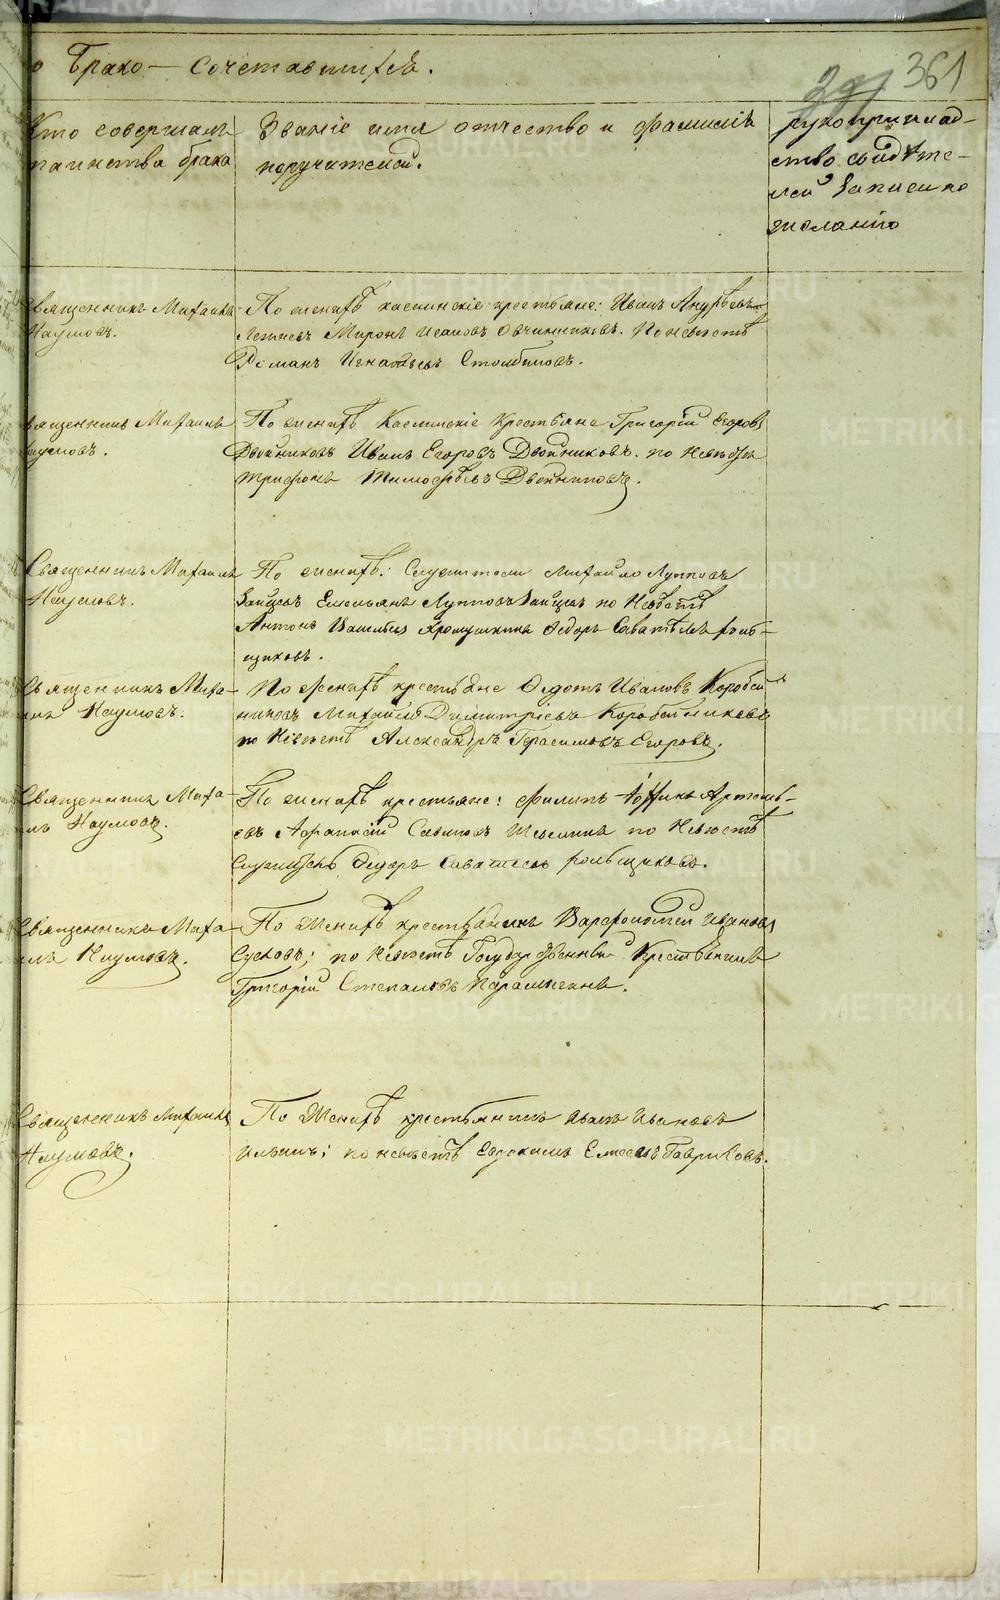 о Брако-сочетавшихся.
361
Кто совершалъ
таинства брака
Званіе имя отчество и фамиліи
поручителей.
рукоприклад-
ство свидѣте-
лей записи по
желанію
Священникъ Михаилъ
Наумовъ.
По женихѣ каслинскіе крестьяне: Иванъ Андреевъ
Миронъ Исаковъ Овчинниковъ. По невѣстѣ
Романъ Игнатьевъ Столбиковъ.
Священникъ Михаилъ
Наумовъ.
По женихѣ Каслинскіе Крестьяне Григорій Егоровъ
Двойниковъ Иванъ Егоровъ Двойниковъ. по Невѣстѣ
Трифонъ Тимофѣевъ Двойниковъ.
Священникъ Михаилъ
Наумовъ.
По женихѣ: Служители Михайло Лупповъ
Зайцевъ Емельянъ Лупповъ Зайцевъ по Невѣстѣ
Антонъ Васильевъ Ѳедоръ Саватѣевъ
щиковъ.
Священникъ Миха-
илъ Наумовъ.
По Женихѣ крестьяне Ѳедотъ Ивановъ Коробей-
никовъ Михайло Димитріевъ Коробейниковъ
по Невѣстѣ Александръ Герасимовъ Егоровъ.
Священникъ Миха-
илъ Наумовъ.
По женихѣ крестьяне: Филипъ Артемь-
евъ Афанасій Савиновъ по Невѣстѣ
Служитель Ѳедоръ Саватѣевъ
Священникъ Миха-
илъ Наумовъ.
По Женихѣ крестьянинъ Варфоломей Ивановъ
Сусловъ; по Невѣстѣ Государственный Крестьянинъ
Григорій Степановъ
Священникъ Михаилъ
Наумовъ.
По Женихѣ крестьянинъ Иванъ Ивановъ
Ильинъ; по невѣстѣ Евдокимъ Елисеевъ Гавриловъ.
METRIKI.GASO-URAL.RU